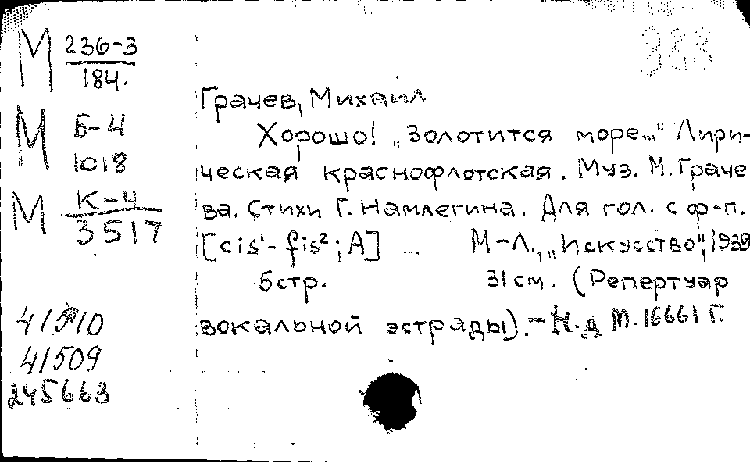 М 236-3
184.
М Б-4
1018
М К-4
3517
41510
41509
245663
Грачев, Михаил
Хорошо! „Золотится море..." Лири-
ческая краснофлотская. Муз. М. Граче
ва. Стихи Г. Намлегина. Для гол. с ф-п.
[cis¹-fis²; A] ... М-Л., „Искусство", 1939
5стр. 31см. (Репертуар
вокальной эстрады). - Н.д М.16661 Г.